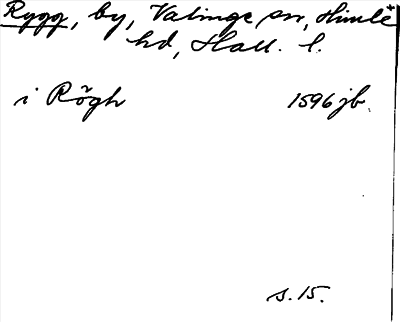 Rygg, by, Valinge sn, Himle*
hd, Hall. l.
i Rögh 1596 jb.
s. 15.